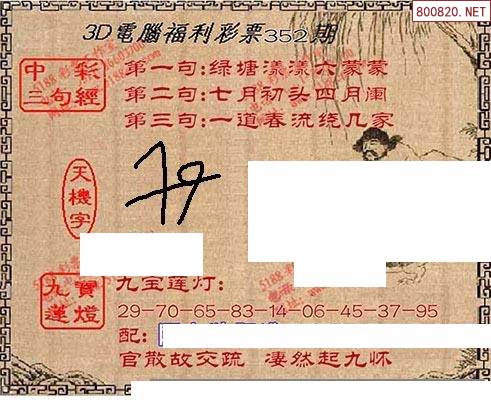 800820.NET
3D電腦福利彩票352期
中彩
三句經
第一句:绿塘漾漾六蒙蒙
第二句:七月初头四月阑
第三句:一道春流绕几家
天機字
九寶
蓮燈
九宝莲灯:
29-70-65-83-14-06-45-37-95
配:
官散故交疏 凄然起九怀